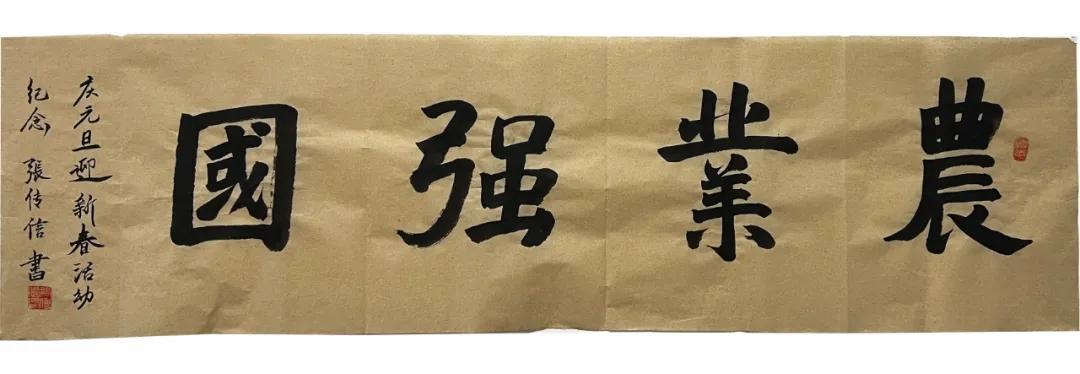 農業强國
庆元旦迎新春活动
纪念 張传信書